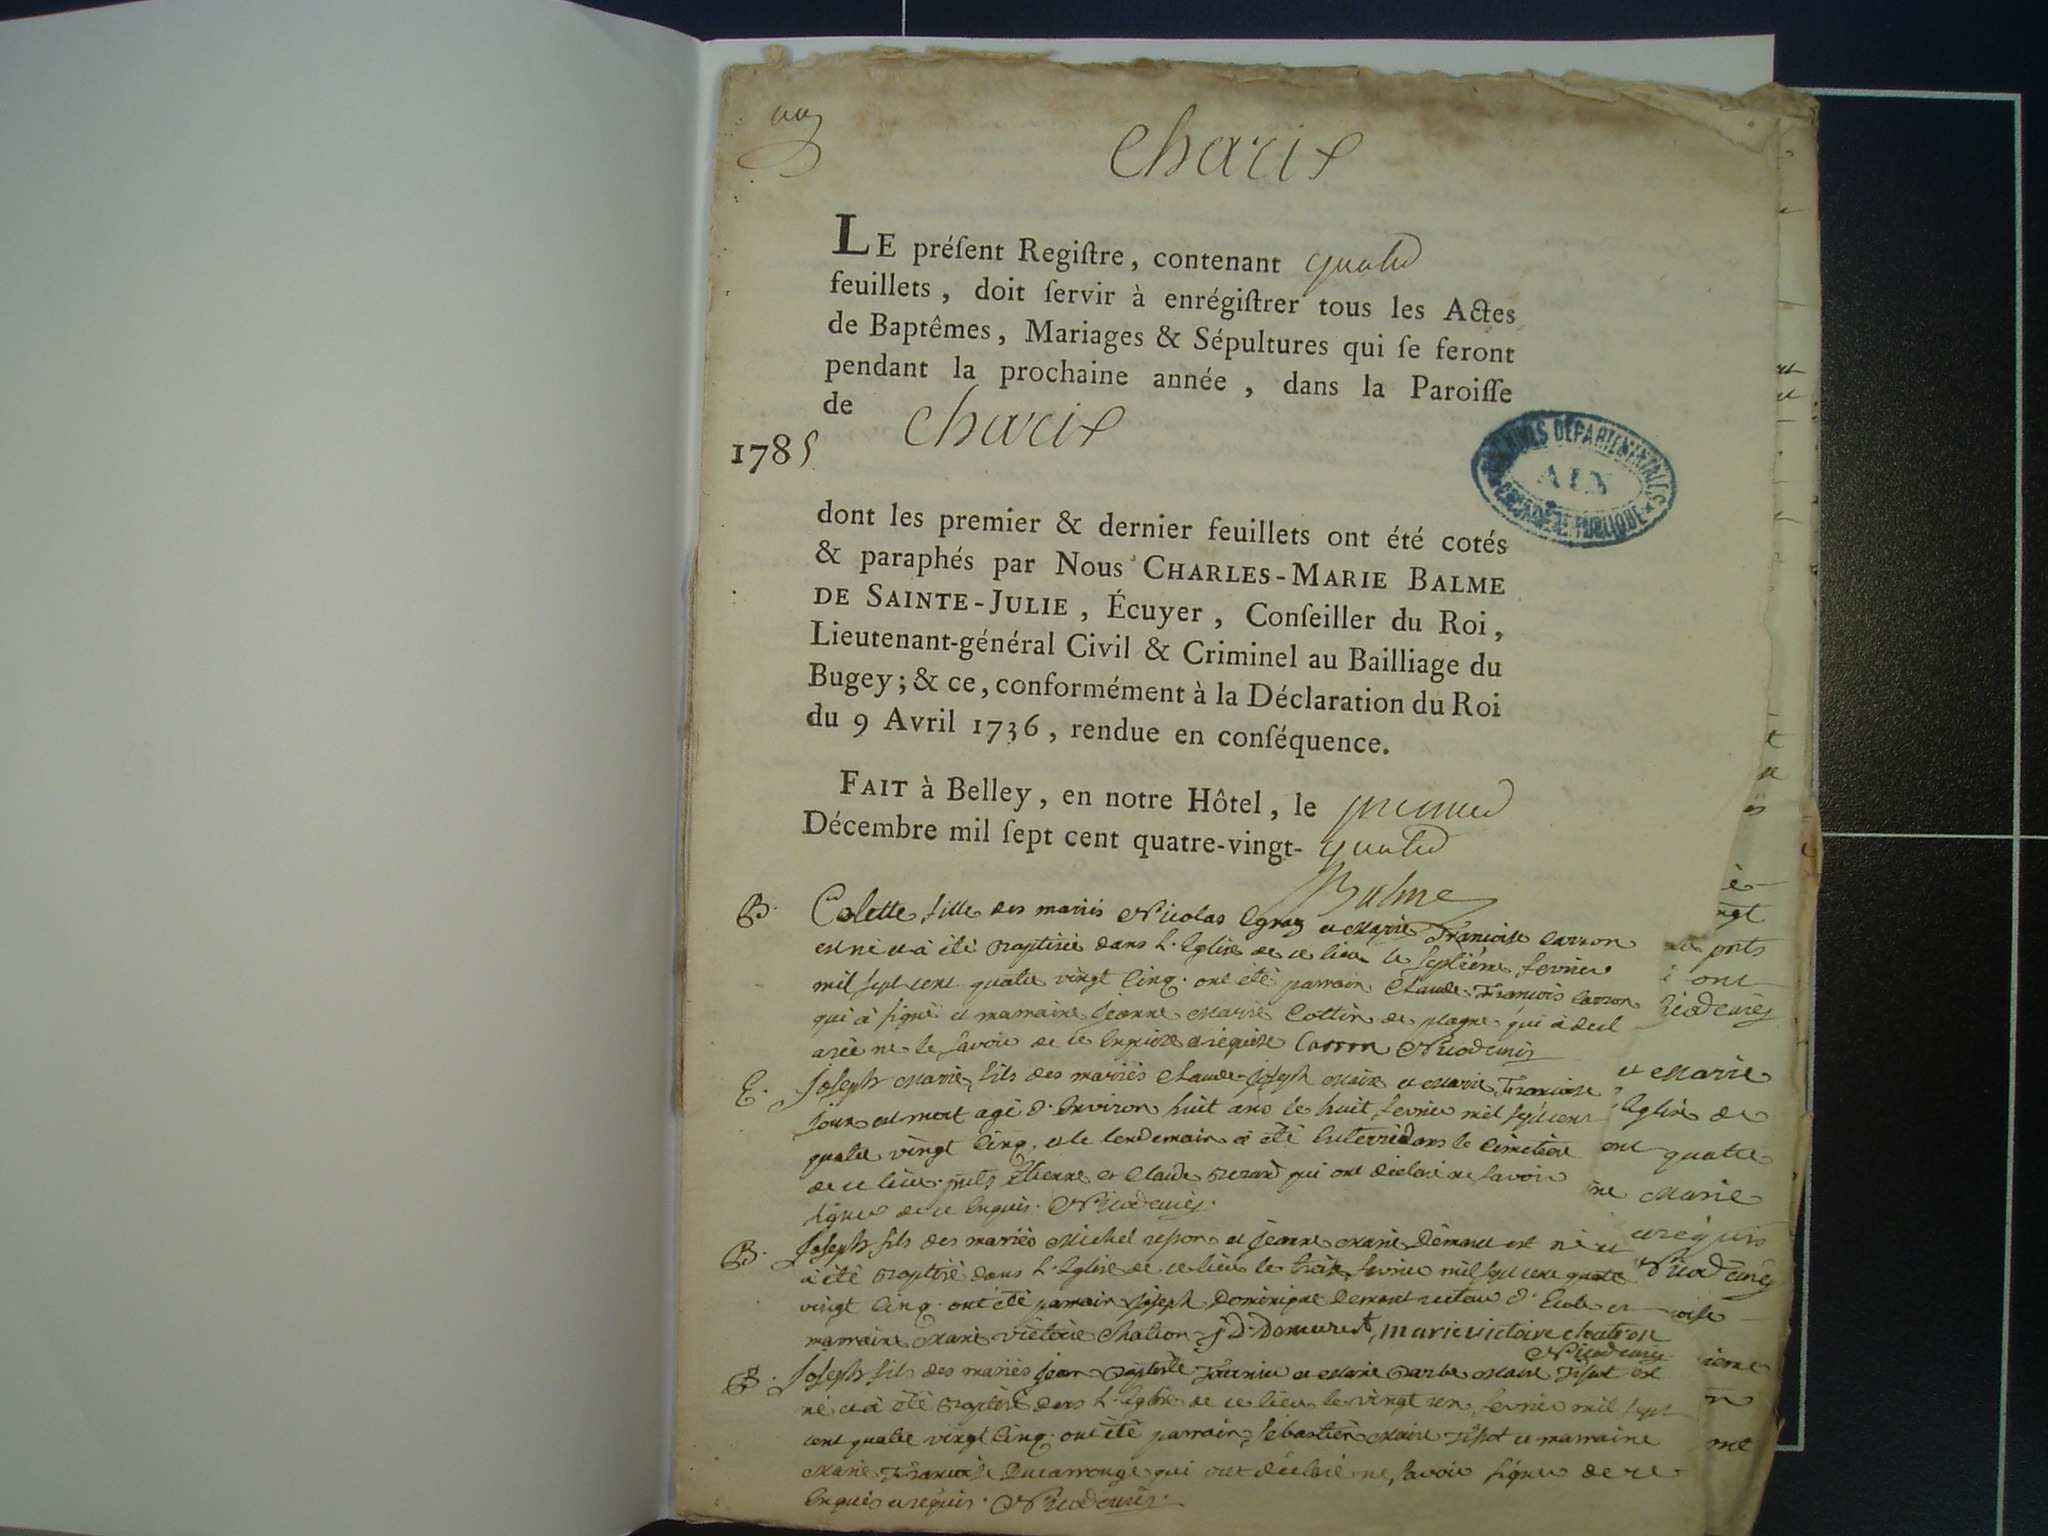 Charix
LE préſent Regiſtre, contenant quatre
feuillets, doit ſervir à enrégiſtrer tous les Actes
de Baptêmes, Mariages & Sépultures qui ſe feront
pendant la prochaine année, dans la Paroiſſe
de Charix
1785
ARCHIVES DÉPARTEMENTALES
AIN
dont les premier & dernier feuillets ont été cotés
& paraphés par Nous CHARLES-MARIE BALME
DE SAINTE-JULIE, Écuyer, Conſeiller du Roi,
Lieutenant-général Civil & Criminel au Bailliage du
Bugey; & ce, conformément à la Déclaration du Roi
du 9 Avril 1736, rendue en conſéquence.
FAIT à Belley, en notre Hôtel, le premier
Décembre mil ſept cent quatre-vingt-quatre
Balme
B. Colette fille des mariés Nicolas et Marie Françoise Carron
est né et à été Baptisée dans l'Eglise de ce lieu le septiéme fevrier
mil sept cent quatre vingt cinq. ont été parrain Claude François Carron
qui à signé et marraine Jeanne Marie Cottin de plagne qui à decl
arée ne le savoir de ce enquise et requise Carron Nicod
E. Joseph Marie fils des mariés Claude Joseph Maire et Marie Françoise
est mort agé d'environ huit ans le huit fevrier mil sept cent
quatre vingt cinq. et le lendemain à été enterré dans le cimetière
de ce lieu. pnts Etienne et Claude qui ont déclaré ne savoir
signer de ce enquis.
B. Joseph fils des mariés Michel et Jeanne Marie est né et
à été Baptisé dans l'Eglise de ce lieu le fevrier mil sept cent quatre
vingt cinq. ont été parrain Joseph Dominique recteur d'Ecole et
marraine Marie victoire marie victoire
B. Joseph fils des mariés Jean Baptiste et Marie Maire Tissot est
né et à été Baptisé dans l'Eglise de ce lieu le vingt un fevrier mil sept
cent quatre vingt cinq. ont été parrain Sébastien Maire Tissot et marraine
Marie Françoise Ducarrouge qui ont déclaré ne savoir signer de ce
enquis et requis.
et Marie
Eglise de
ont quatre
Marie